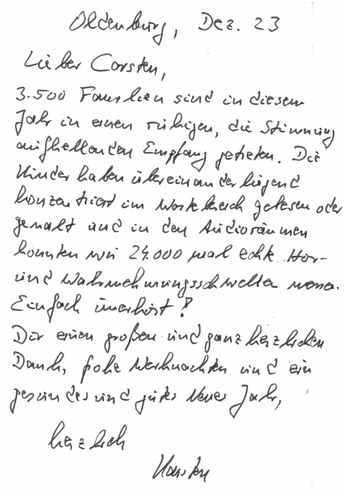 Oldenburg, Dez. 23
Lieber Corsten,
3.500 Familien sind in diesem
Jahr in einen ruhigen, die Stimmung
aufhellenden Empfang getreten. Die
Kinder haben übereinander liegend
konzentriert im Wartebereich gelesen oder
gemalt und in den Audioräumen
konnten wir 24.000 mal echte Hör-
und Wahrnehmungsschwellen messen.
Einfach unerhört!
Dir einen großen und ganz herzlichen
Dank, frohe Weihnachten und ein
gesundes und gutes Neues Jahr,
herzlich
Karsten